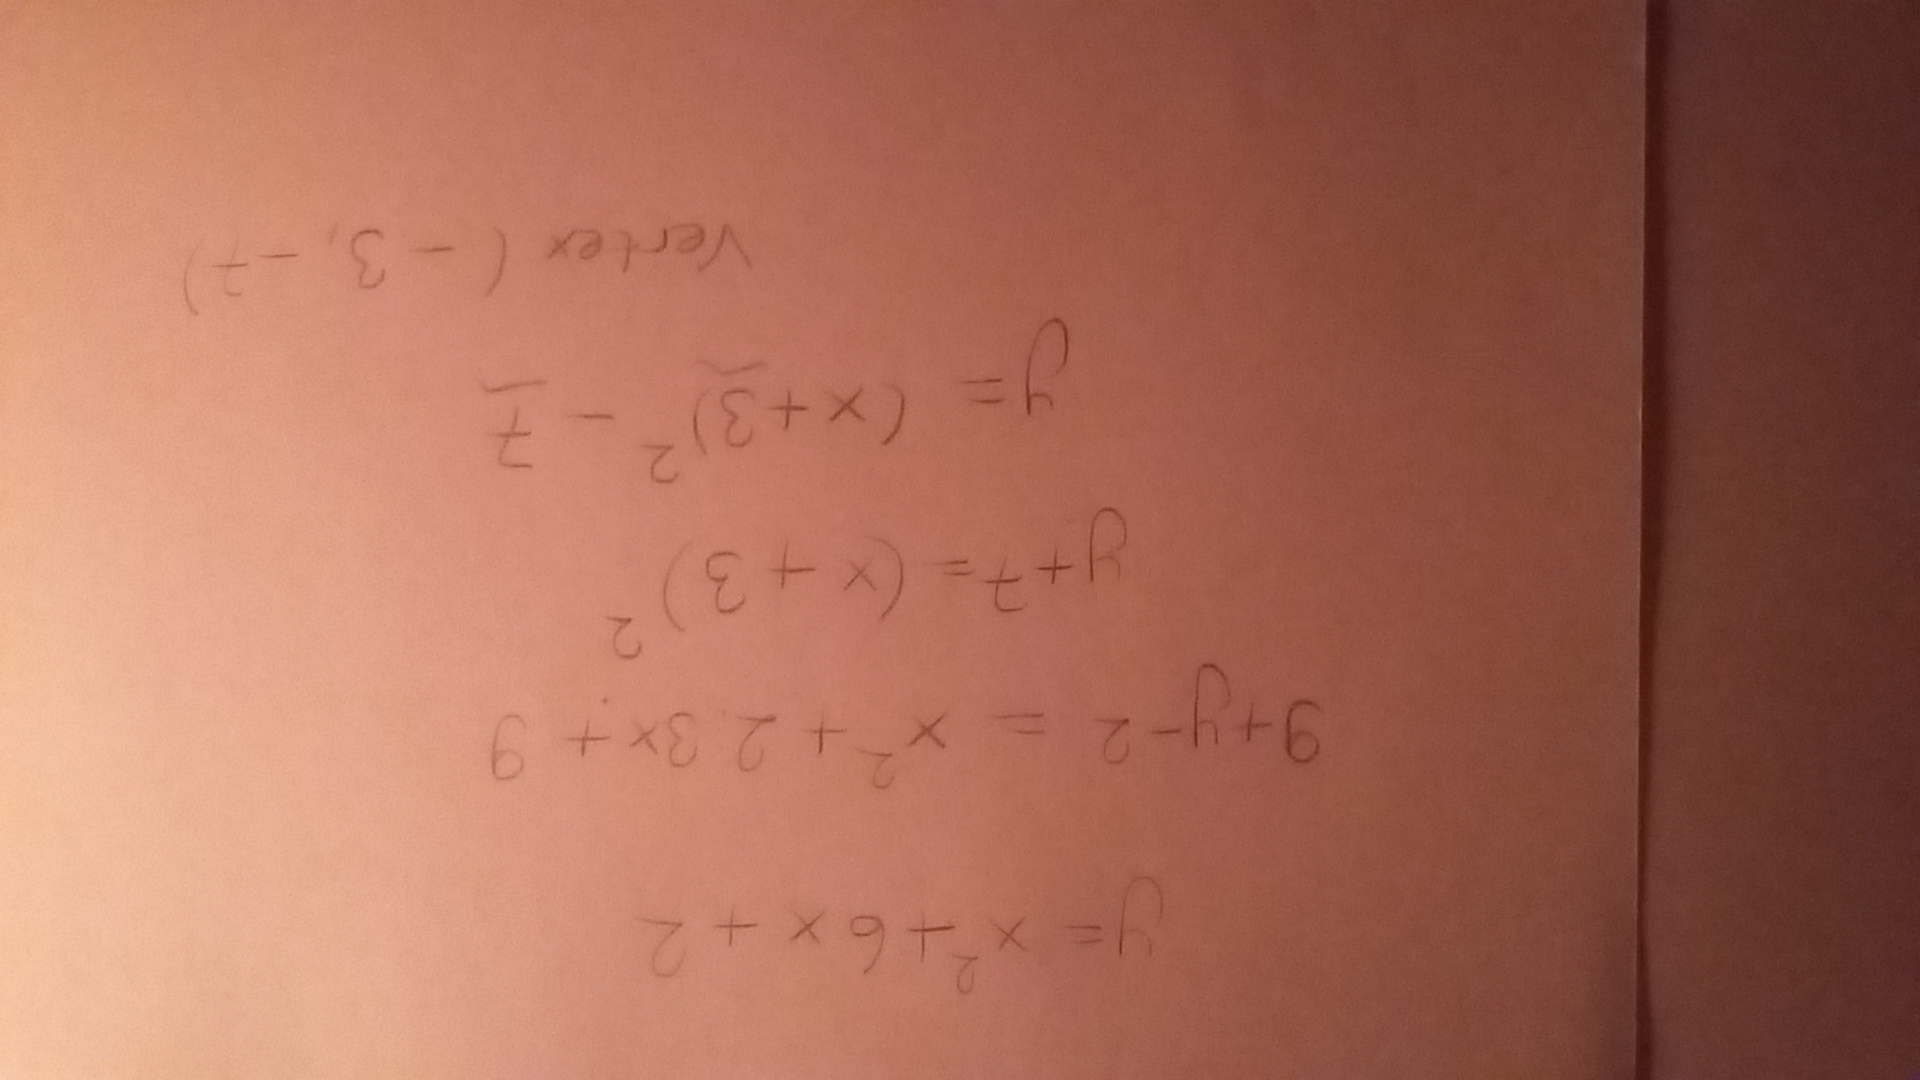 y = x² + 6x + 2
9 + y - 2 = x² + 2·3x + 9
y + 7 = (x + 3)²
y = (x + 3)² - 7
Vertex (-3, -7)